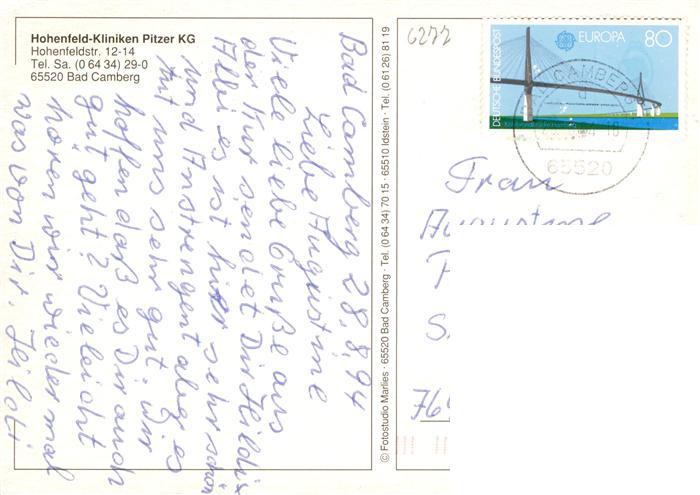 Hohenfeld-Kliniken Pitzer KG
Hohenfeldstr. 12-14
Tel. Sa. (0 64 34) 29-0
65520 Bad Camberg
Bad Camberg 28,8,94
Liebe Augustine
Viele liebe Grüße aus
der Kur sendet Dir Heildi +
Albi es ist hier sehr schön
und Anstrengent aber es
tut uns sehr gut. wir
hoffen daß es Dir auch
gut geht? Vieleicht
hören wir wieder mal
was von Dir.
© Fotostudio Marlies · 65520 Bad Camberg · Tel. (0 64 34) 70 15 · 65510 Idstein · Tel. (0 61 26) 81 19
6277
DEUTSCHE BUNDESPOST
EUROPA
80
BAD CAMBERG
d
65520
Frau
Augustine
F
S
76